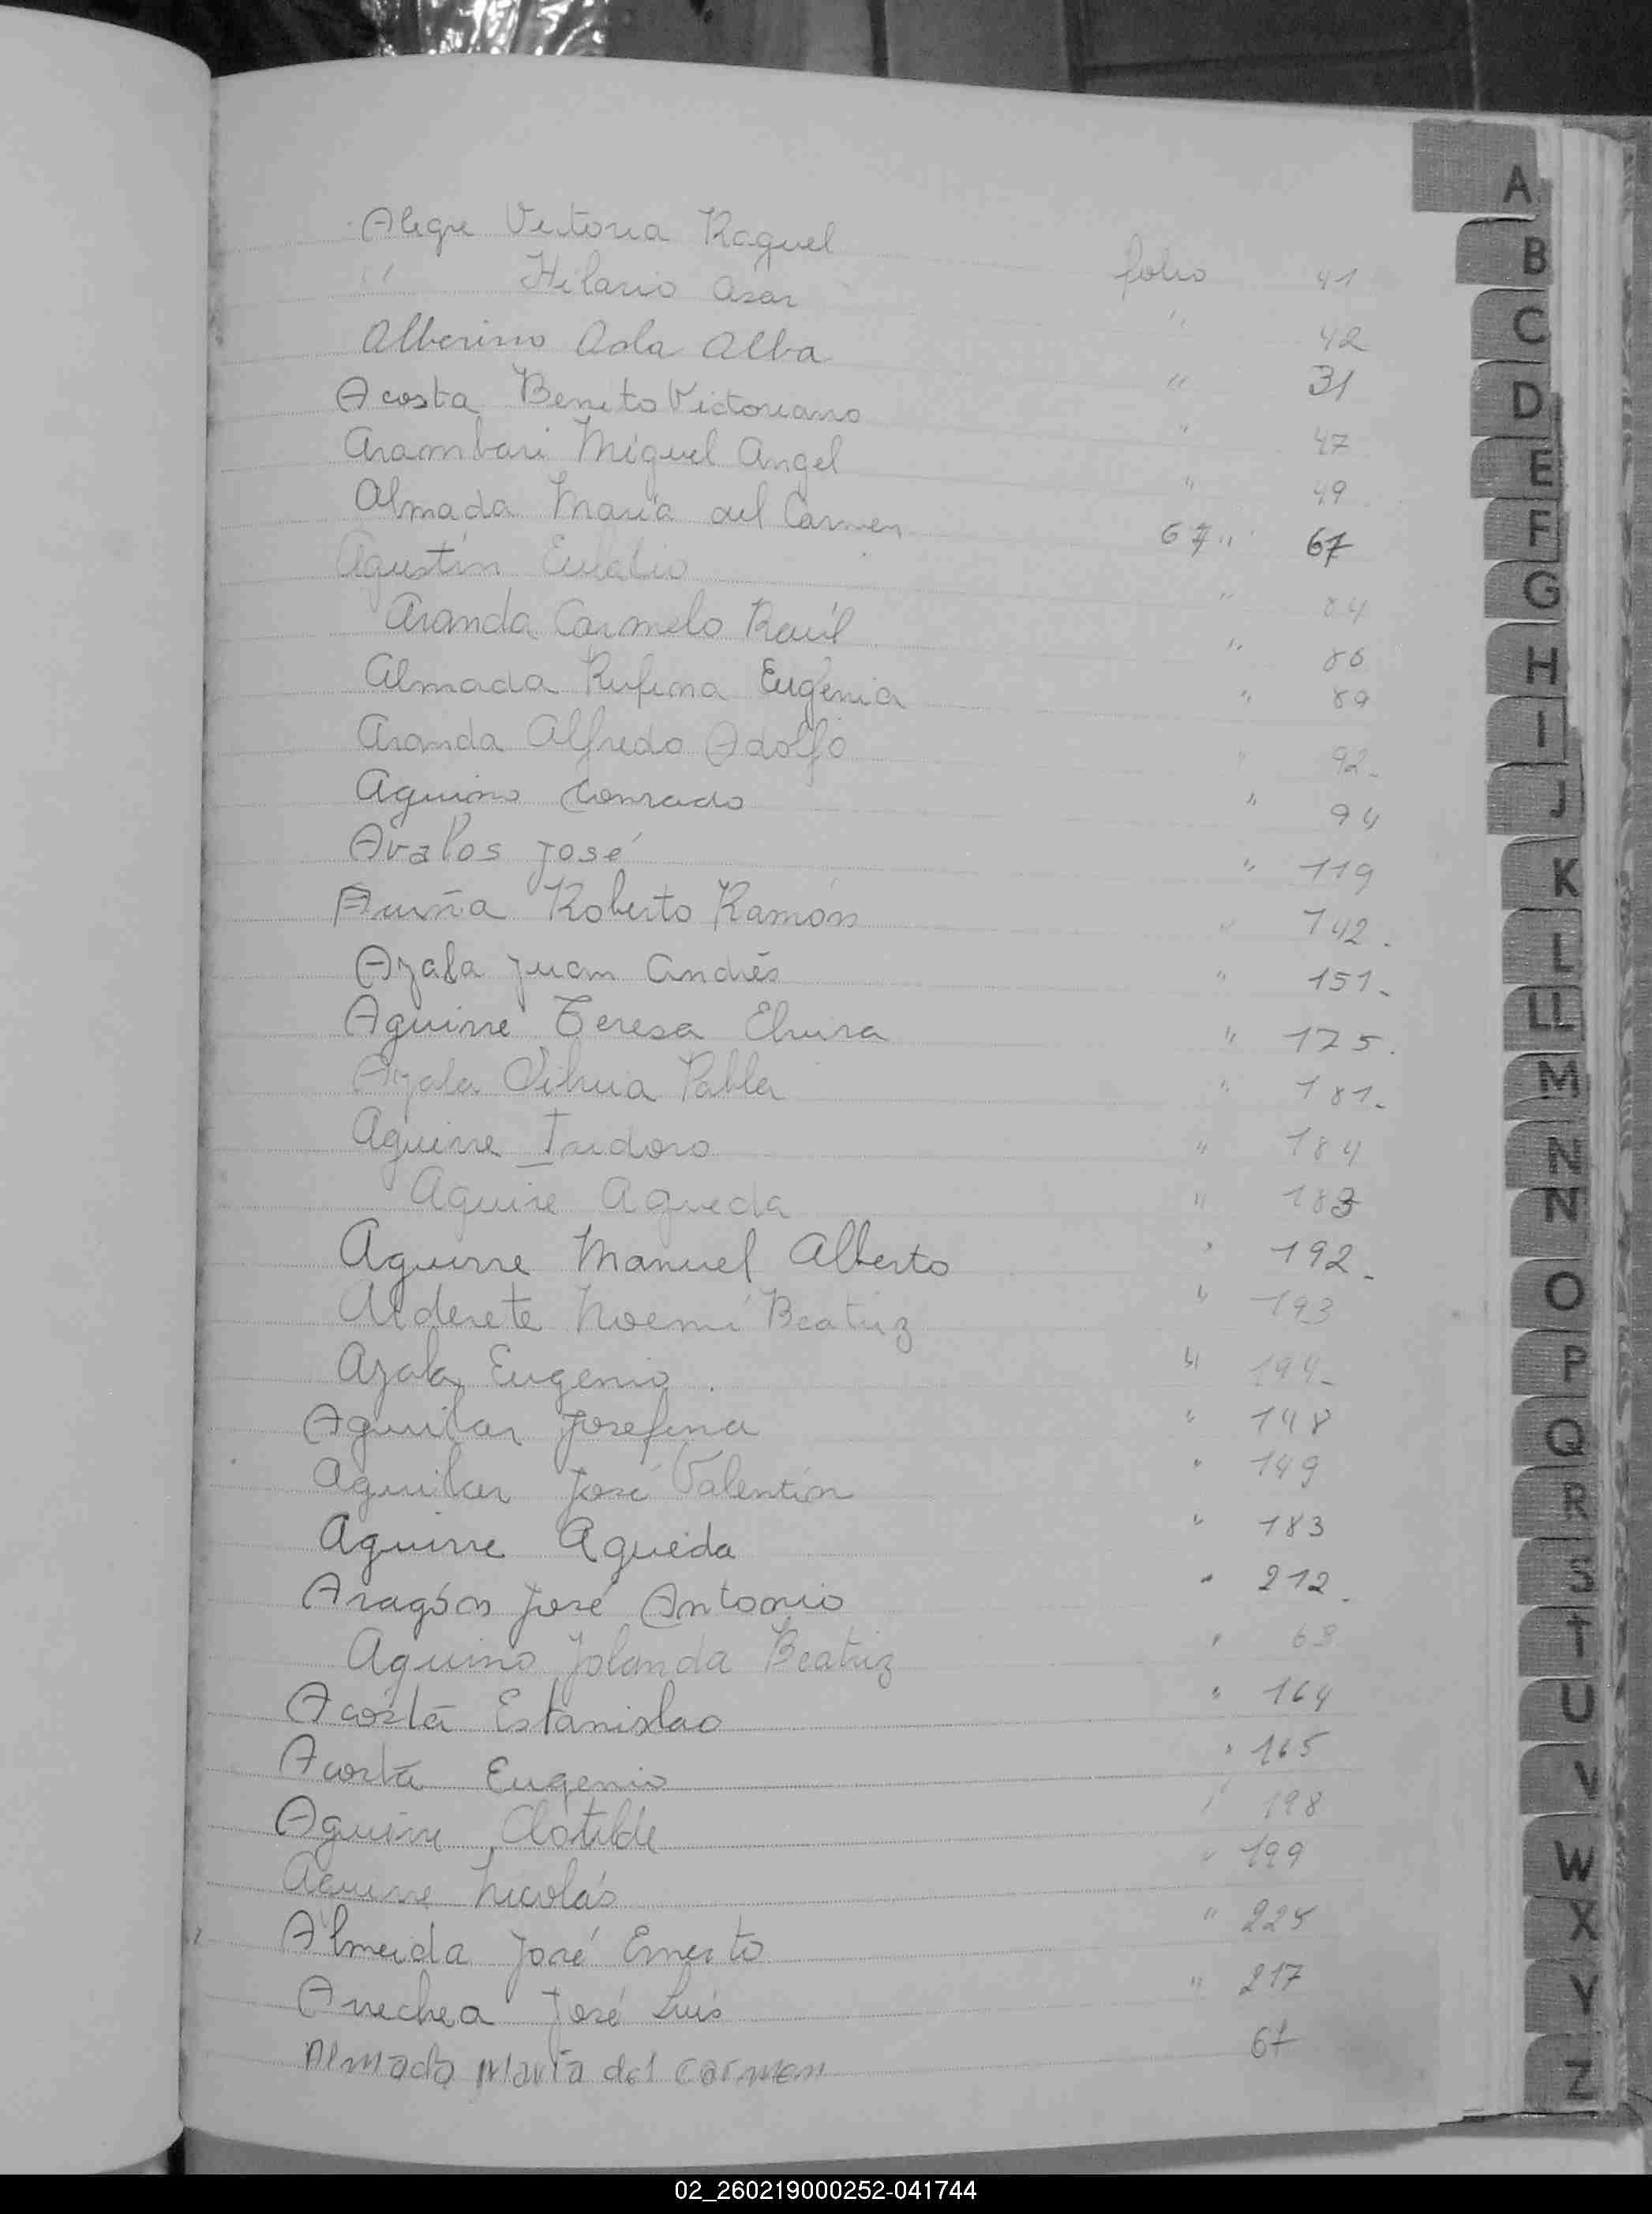 Alegre Victoria Raquel folio 41
" Hilario Asar " 42
Alberino Ada Alba " 31
Acosta Benito Victoriano " 47
Arambari Miguel Angel " 49
Almada María del Carmen 67 " 67
Agustín Eulalio " 84
Aranda Carmelo Raúl " 86
Almada Rufina Eugenia " 89
Aranda Alfredo Adolfo " 92-
Aguino Conrado " 94
Avalos José " 119
Acuña Roberto Ramón " 142.
Ayala Juan Andrés " 151-
Aguirre Teresa Elvira " 175.
Ayala Silvia Pabla " 181-
Aguirre Isidoro " 184
Aguire Agueda " 183
Aguirre Manuel Alberto " 192-
Alderete Noemi Beatriz " 193
Ayala Eugenio. " 194-
Aguilar Josefina " 148
Aguilar José Valentín " 149
Aguirre Agueda " 183
Aragón José Antonio " 212.
Aguino Jolanda Beatriz " 63
Acosta Estanislao " 164
Acosta Eugenio " 165
Aguirre Clotilde " 198
Aguirre Nicolás " 199
Almeida José Ernesto " 225
Arechea José Luis " 217
Almada María del Carmen 67
A
B
C
D
E
F
G
H
I
J
K
L
LL
M
N
N
O
P
Q
R
S
T
U
V
W
X
Y
Z
02_260219000252-041744